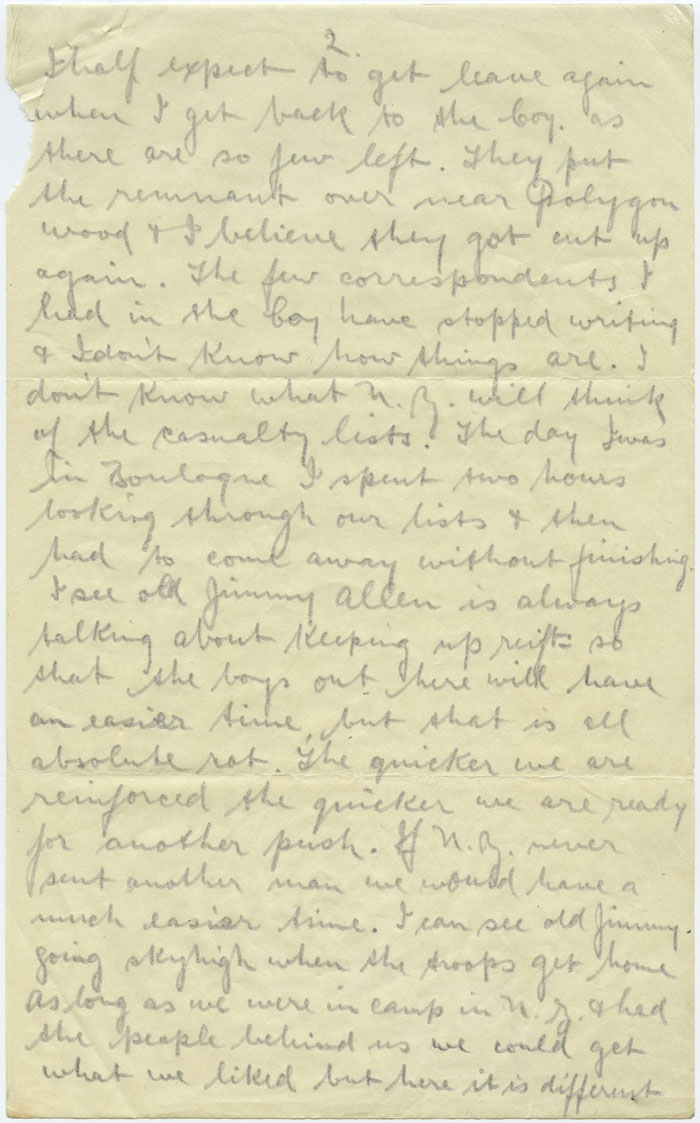 2.
I half expect to get leave again
when I get back to the Coy. as
there are so few left. They put
the remnant over near Polygon
wood & I believe they got cut up
again. The few correspondents I
had in the Coy have stopped writing
& I don't know how things are. I
don't know what N.Z. will think
of the casualty lists. The day I was
in Boulogne I spent two hours
looking through our lists & then
had to come away without finishing.
I see old Jimmy Allen is always
talking about keeping up reifts so
that the boys out here will have
an easier time, but that is all
absolute rot. The quicker we are
reinforced the quicker we are ready
for another push. If N.Z. never
sent another man we would have a
much easier time. I can see old Jimmy.
going skyhigh when the troops get home
As long as we were in camp in N.Z. & had
the people behind us we could get
what we liked but here it is different